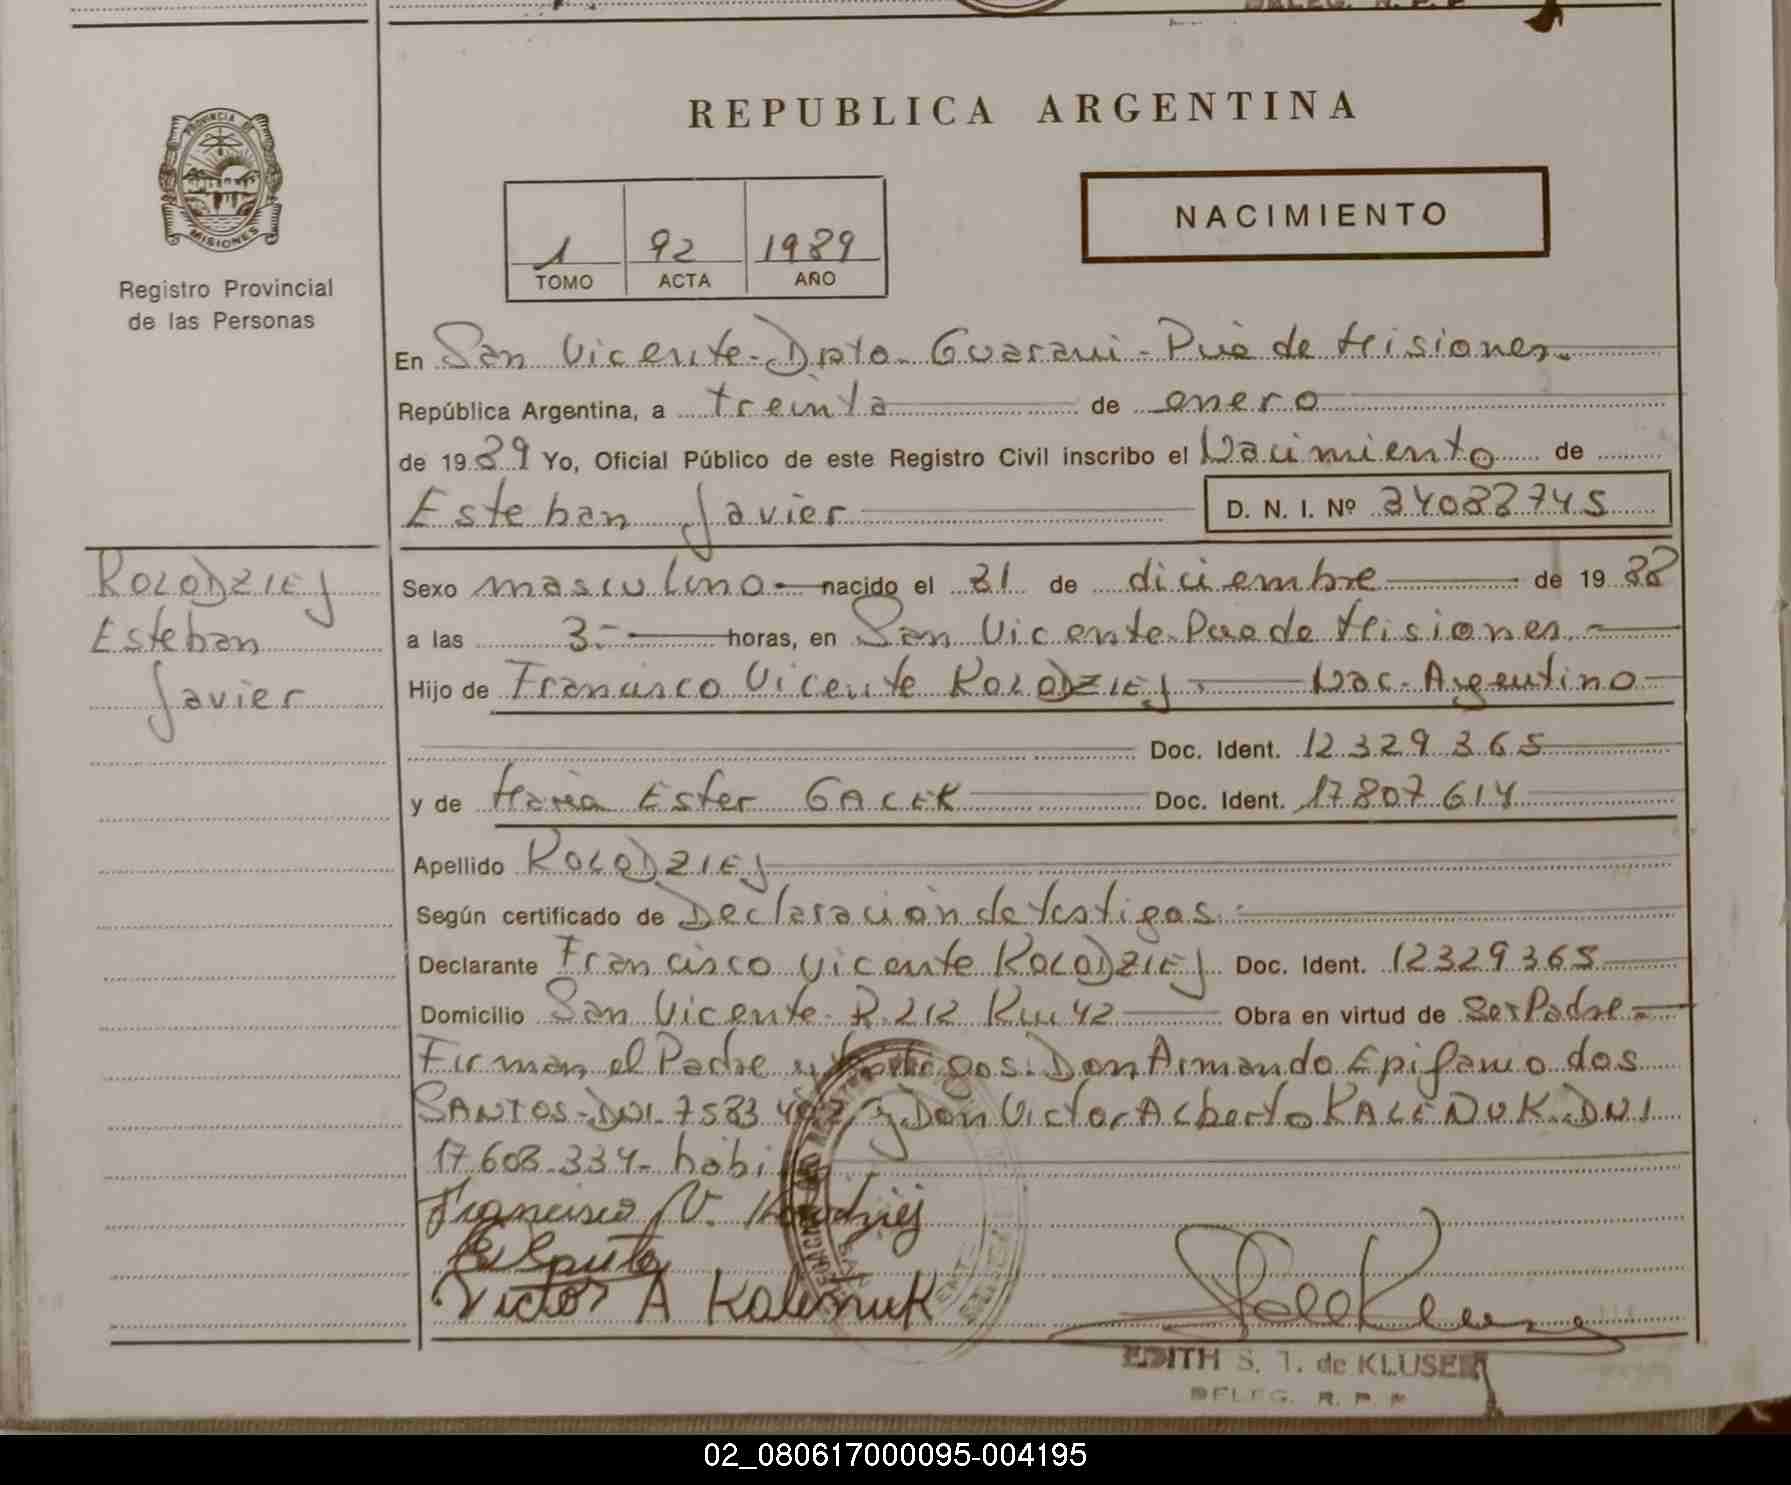 REPUBLICA ARGENTINA
PROVINCIA DE
MISIONES
Registro Provincial
de las Personas
NACIMIENTO
1 92 1989
TOMO ACTA AÑO
En San Vicente - Dpto Guarani - Pcia de Misiones.
República Argentina, a treinta de enero
de 1989 Yo, Oficial Público de este Registro Civil inscribo el Nacimiento de
Esteban Javier D. N. I. Nº 34088745
KOLODZIEJ
Esteban
Javier
Sexo masculino nacido el 31 de diciembre de 1988
a las 3.- horas, en San Vicente Pcia de Misiones. -
Hijo de Francisco Vicente KOLODZIEJ - Nac. Argentino
Doc. Ident. 12 329 365
y de Maria Ester GACEK Doc. Ident. 17 807 614
Apellido KOLODZIEJ
Según certificado de Declaración de testigos. -
Declarante Francisco Vicente KOLODZIEJ Doc. Ident. 12329365
Domicilio San Vicente - R. 212 Km 42 Obra en virtud de Ser Padre -
Firman el Padre y testigos: Don Armando Epifanio dos
SANTOS - DNI. 7583 y Don Victor Alberto KALENUK. DNI
17.608.334 - habi
Francisco V. Kolodziej
Victor A Kalenuk
EDITH S. T. de KLUSER
DELEG. R. P. P
02_080617000095-004195